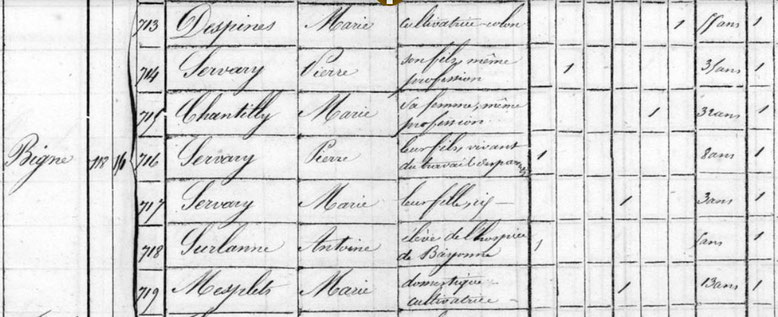 713 Despines Marie cultivatrice colon 1 ans 1
714 Servary Pierre son fils, même profession 1 35 ans 1
715 Chantilly Marie Sa femme, même profession 1 32 ans 1
Bigne 118 716 Servary Pierre leur fils, vivant du travail des parents 1 8 ans 1
717 Servary Marie leur fille, id 1 3 ans 1
718 Surlanne Antoine élève de l'hospice de Bayonne 1 ans 1
719 Mesplets Marie domestique cultivatrice 1 13 ans 1